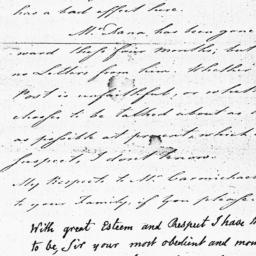 has a bad effect here.
Mr Dana has been gone
ward these four Months, but
no Letters from him. Whether
Post is unfaithful; or whether
chooses to be talked about as
as possible at present, which
suspect, I dont know.
My Respects to Mr Carmichael
to your Family, if you please.
With great Esteem and Respect I have
to be, Sir your most obedient and